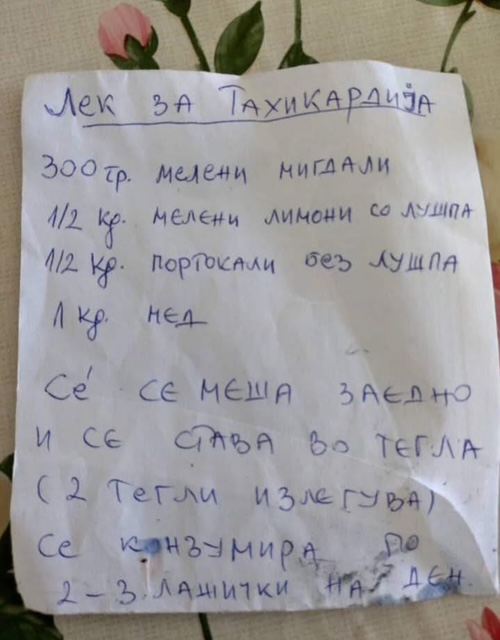 Лек за Тахикардија
300 гр. мелени мигдали
1/2 кг. мелени лимони со лушпа
1/2 кг. портокали без лушпа
1 кг. мед
Сѐ се меша заедно
и се става во тегла
(2 тегли излегува)
Се конзумира по
2-3 лажички на ден.